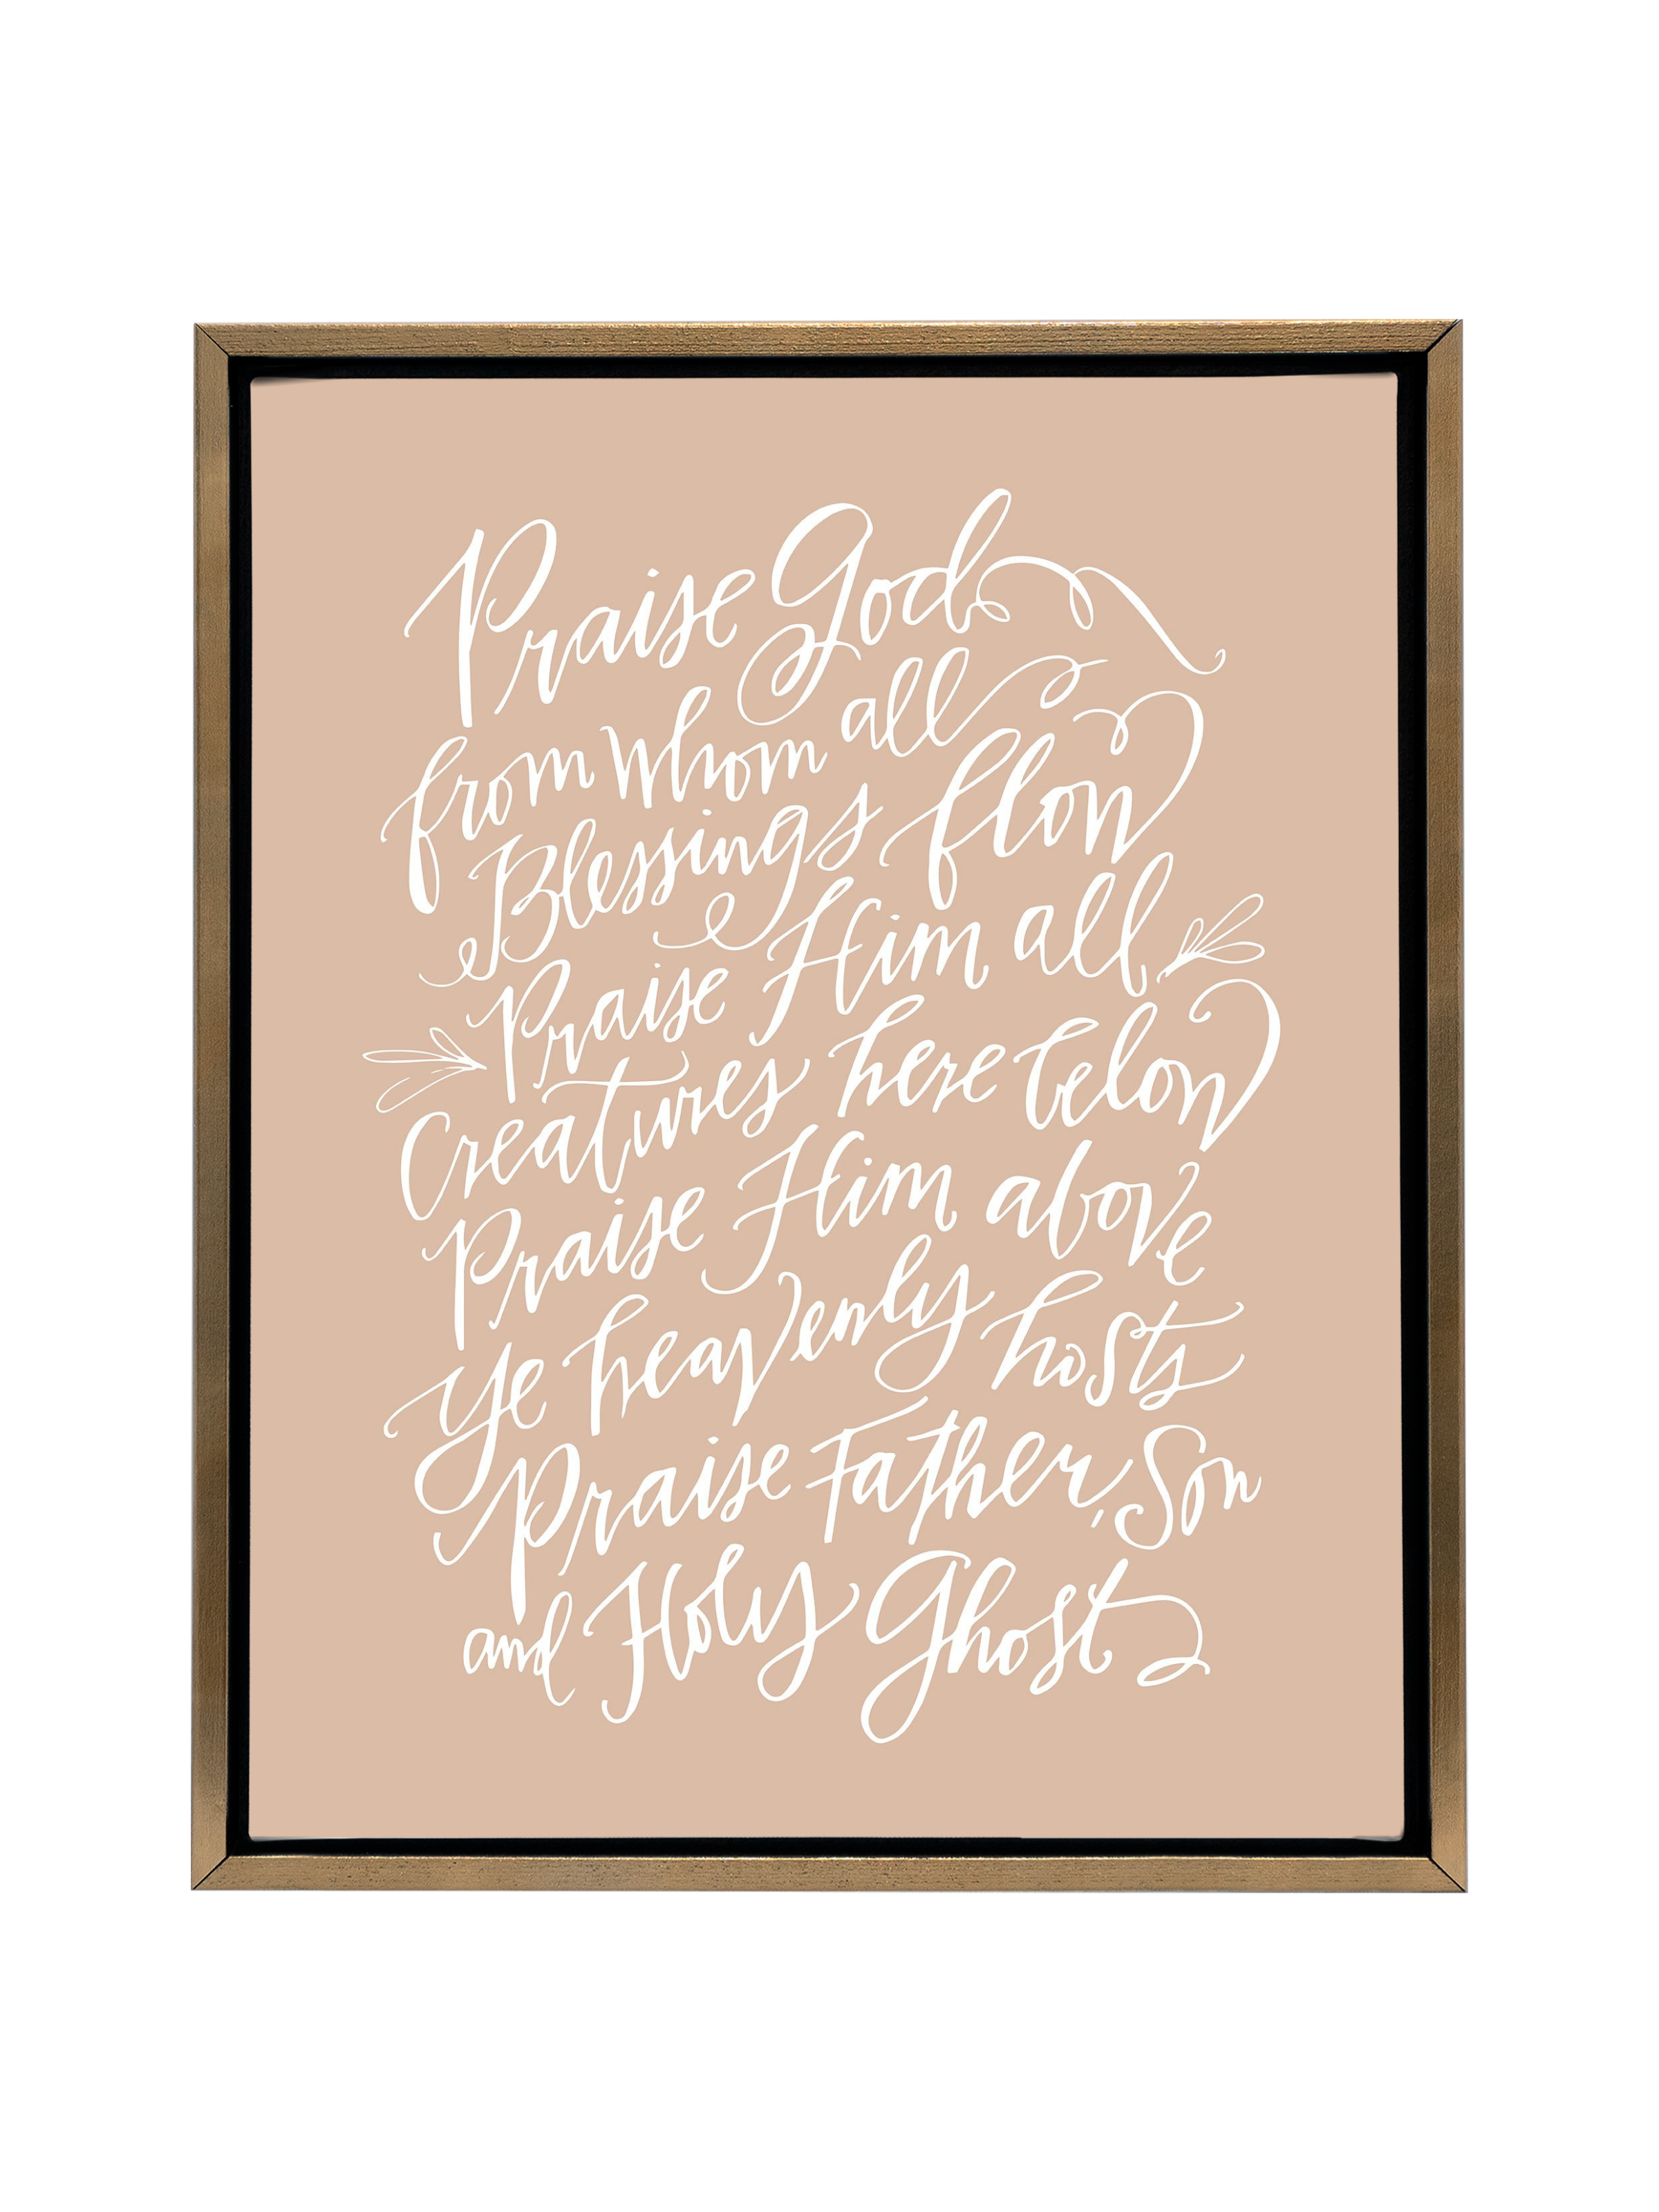 Praise God
from whom all
Blessings flow
Praise Him all
Creatures here below
Praise Him above
ye heavenly hosts
Praise Father, Son
and Holy Ghost